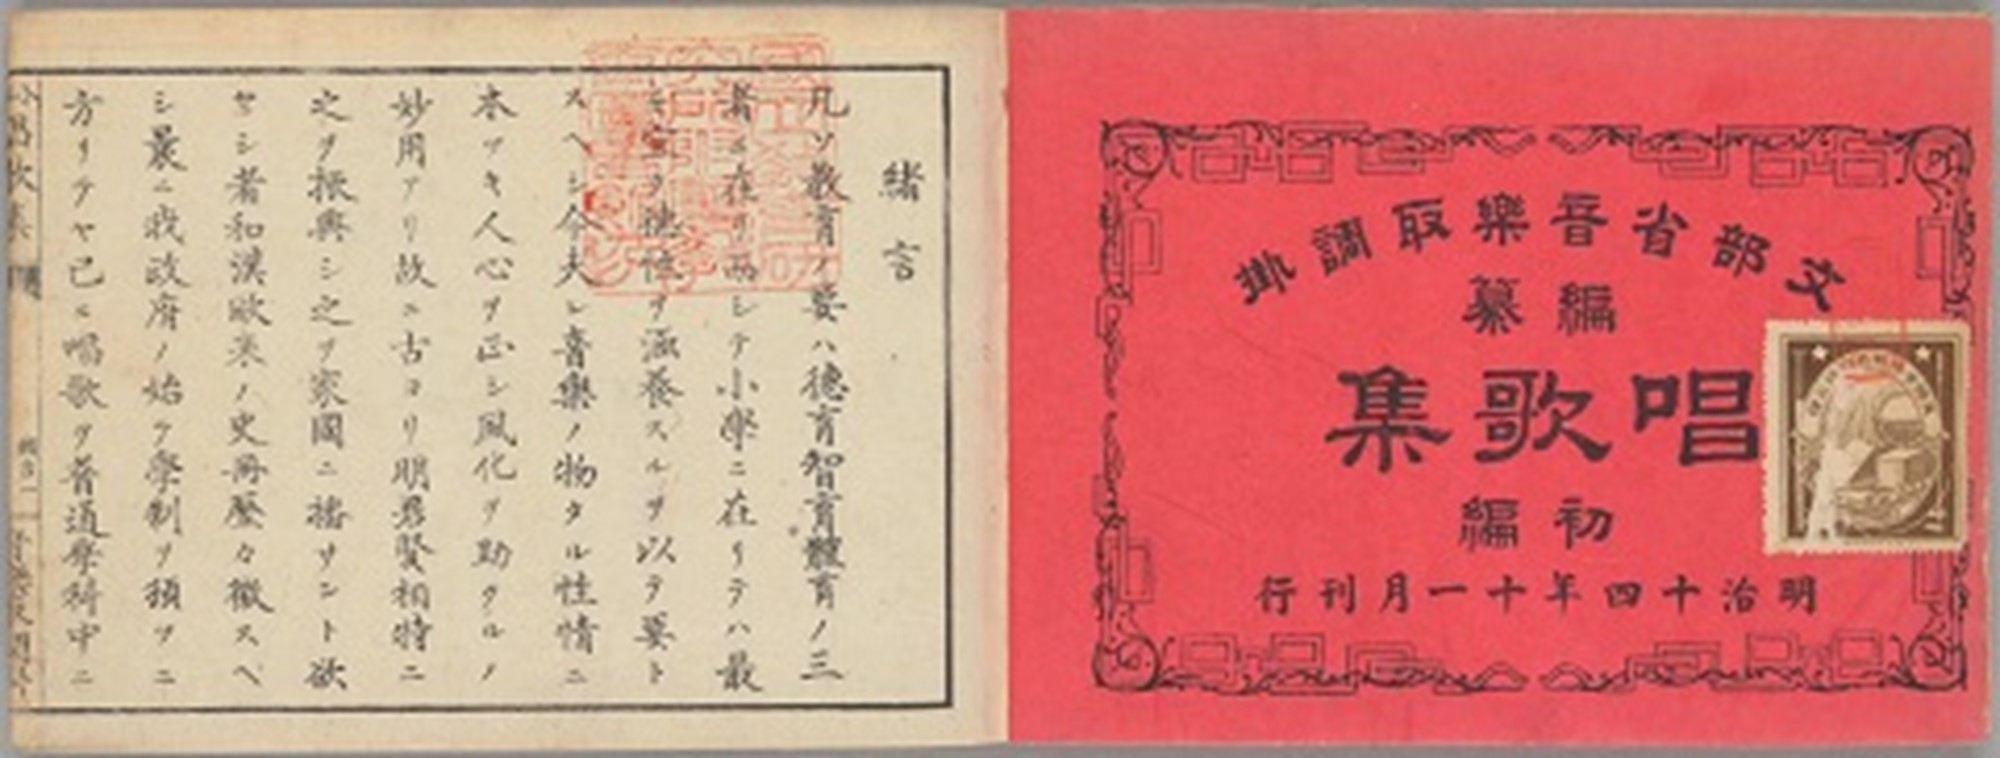 文部省音樂取調掛
編纂
唱歌集
初編
明治十四年十一月刊行
緒言
凡ソ教育ノ要ハ德育智育體育ノ三
者ニ在リ而シテ小學ニ在リテハ最
モ宜ク德性ヲ涵養スルヲ以テ要ト
スヘシ今夫レ音樂ノ物タル性情ニ
本ツキ人心ヲ正シ風化ヲ助クルノ
妙用アリ故ニ古ヨリ明君賢相特ニ
之ヲ振興シ之ヲ家國ニ播サント欲
セシ者和漢歐米ノ史冊歷々徵スヘ
シ曩ニ我政府ノ始テ學制ヲ頒ツニ
方リテヤ已ニ唱歌ヲ普通學科中ニ